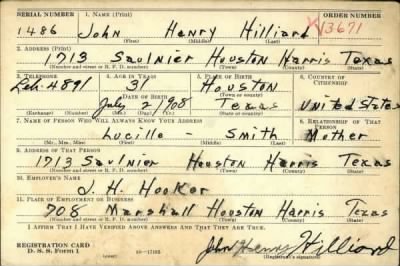 SERIAL NUMBER 1. NAME (Print) ORDER NUMBER
1486 John Henry Hilliard 13671
(First) (Middle) (Last)
2. ADDRESS (Print)
1713 Saulnier Houston Harris Texas
(Number and street or R. F. D. number) (Town) (County) (State)
3. TELEPHONE 4. AGE IN YEARS 5. PLACE OF BIRTH 6. COUNTRY OF CITIZENSHIP
4891 31 Houston
DATE OF BIRTH (Town or county)
July 2 1908 Texas United States
(Exchange) (Number) (Mo.) (Day) (Yr.) (State or country)
7. NAME OF PERSON WHO WILL ALWAYS KNOW YOUR ADDRESS 8. RELATIONSHIP OF THAT PERSON
Lucille - Smith Mother
(Mr., Mrs., Miss) (First) (Middle) (Last)
9. ADDRESS OF THAT PERSON
1713 Saulnier Houston Harris Texas
(Number and street or R. F. D. number) (Town) (County) (State)
10. EMPLOYER'S NAME
J. H. Hooker
11. PLACE OF EMPLOYMENT OR BUSINESS
728 Marshall Houston Harris Texas
(Number and street or R. F. D. number) (Town) (County) (State)
I AFFIRM THAT I HAVE VERIFIED ABOVE ANSWERS AND THAT THEY ARE TRUE.
REGISTRATION CARD
D. S. S. Form 1 John Henry Hilliard
(Registrant's signature)